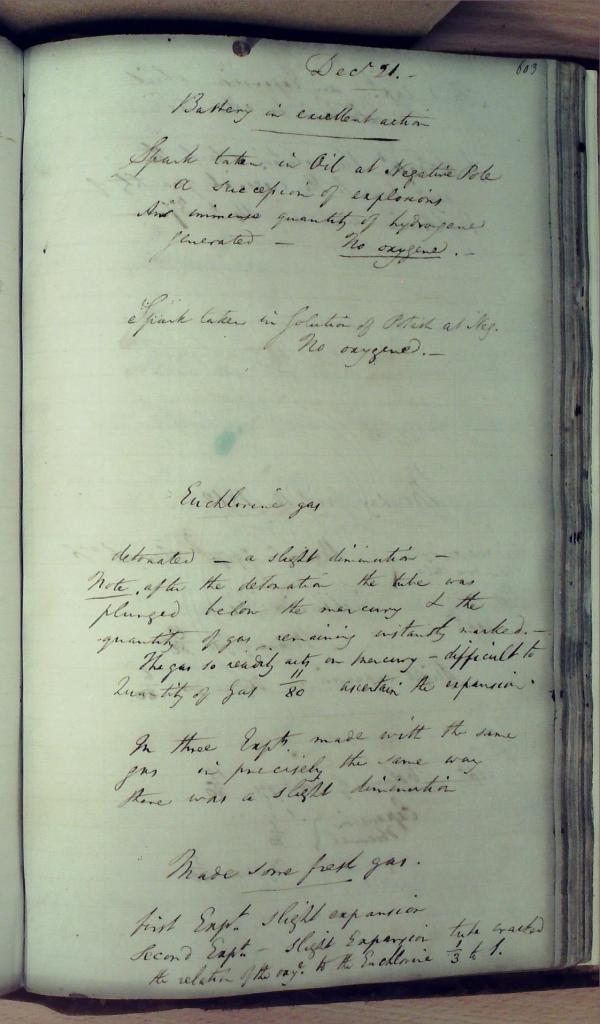 603
Decr 21. -
Battery in excellent action
Spark taken in Oil at Negative Pole
a succession of explosions
An immense quantity of hydrogene
generated — No oxygene. -
Spark taken in Solution of Potash at Neg.
No oxygene. -
Euchlorine gas
detonated — a slight diminution -
Note. after the detonation the tube was
plunged below the mercury & the
quantity of gas remaining instantly marked. -
The gas so readily acts on mercury - difficult to
Quantity of Gas 11/80 ascertain the expansion.
In three Expts. made with the same
gas in precisely the same way
there was a slight diminution
Made some fresh gas.
first Expt. slight expansion
Second Expt - slight Expansion tube cracked
the relation of the oxy. to the Euchlorine 1/3 to 1.